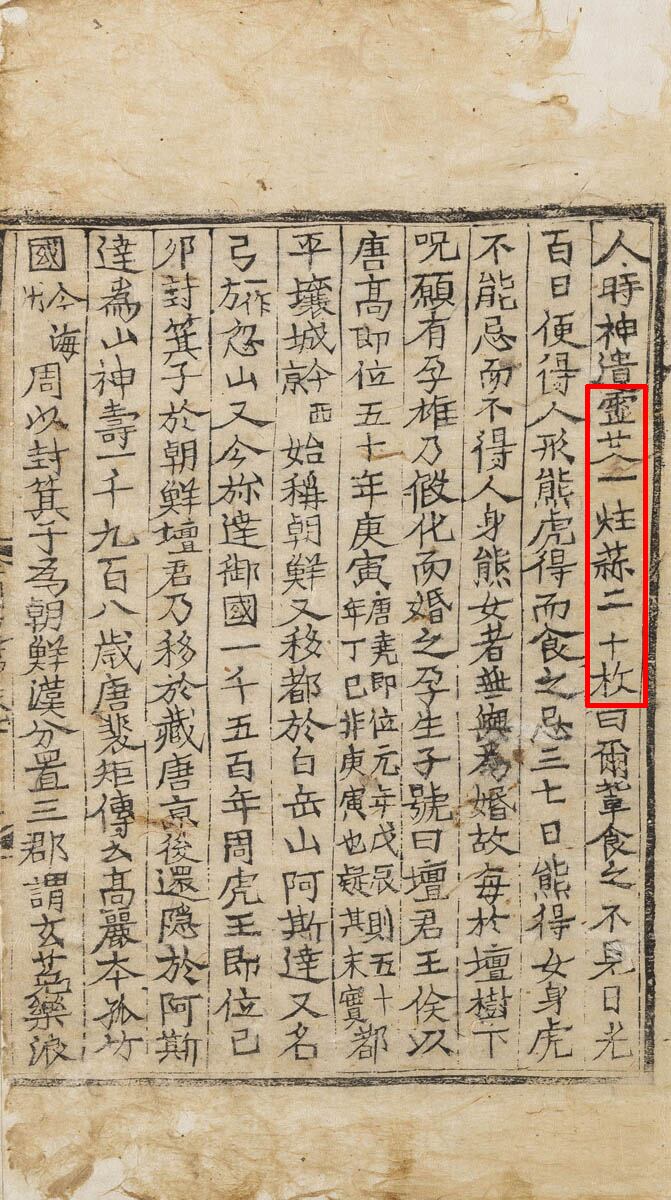 人時神遺靈艾一炷蒜二十枚曰爾輩食之不見日光
百日便得人形熊虎得而食之忌三七日熊得女身虎
不能忌而不得人身熊女者無與為婚故每於壇樹下
呪願有孕雄乃假化而婚之孕生子號曰壇君王儉以
唐高即位五十年庚寅唐堯即位元年戊辰則五十年丁巳非庚寅也疑其未實都
平壤城今西京始稱朝鮮又移都於白岳山阿斯達又名
弓一作方忽山又今旀達御國一千五百年周虎王即位己
卯封箕子於朝鮮壇君乃移於藏唐京後還隱於阿斯
達為山神壽一千九百八歲唐裴矩傳云高麗本孤竹
國今海州周以封箕子為朝鮮漢分置三郡謂玄菟樂浪